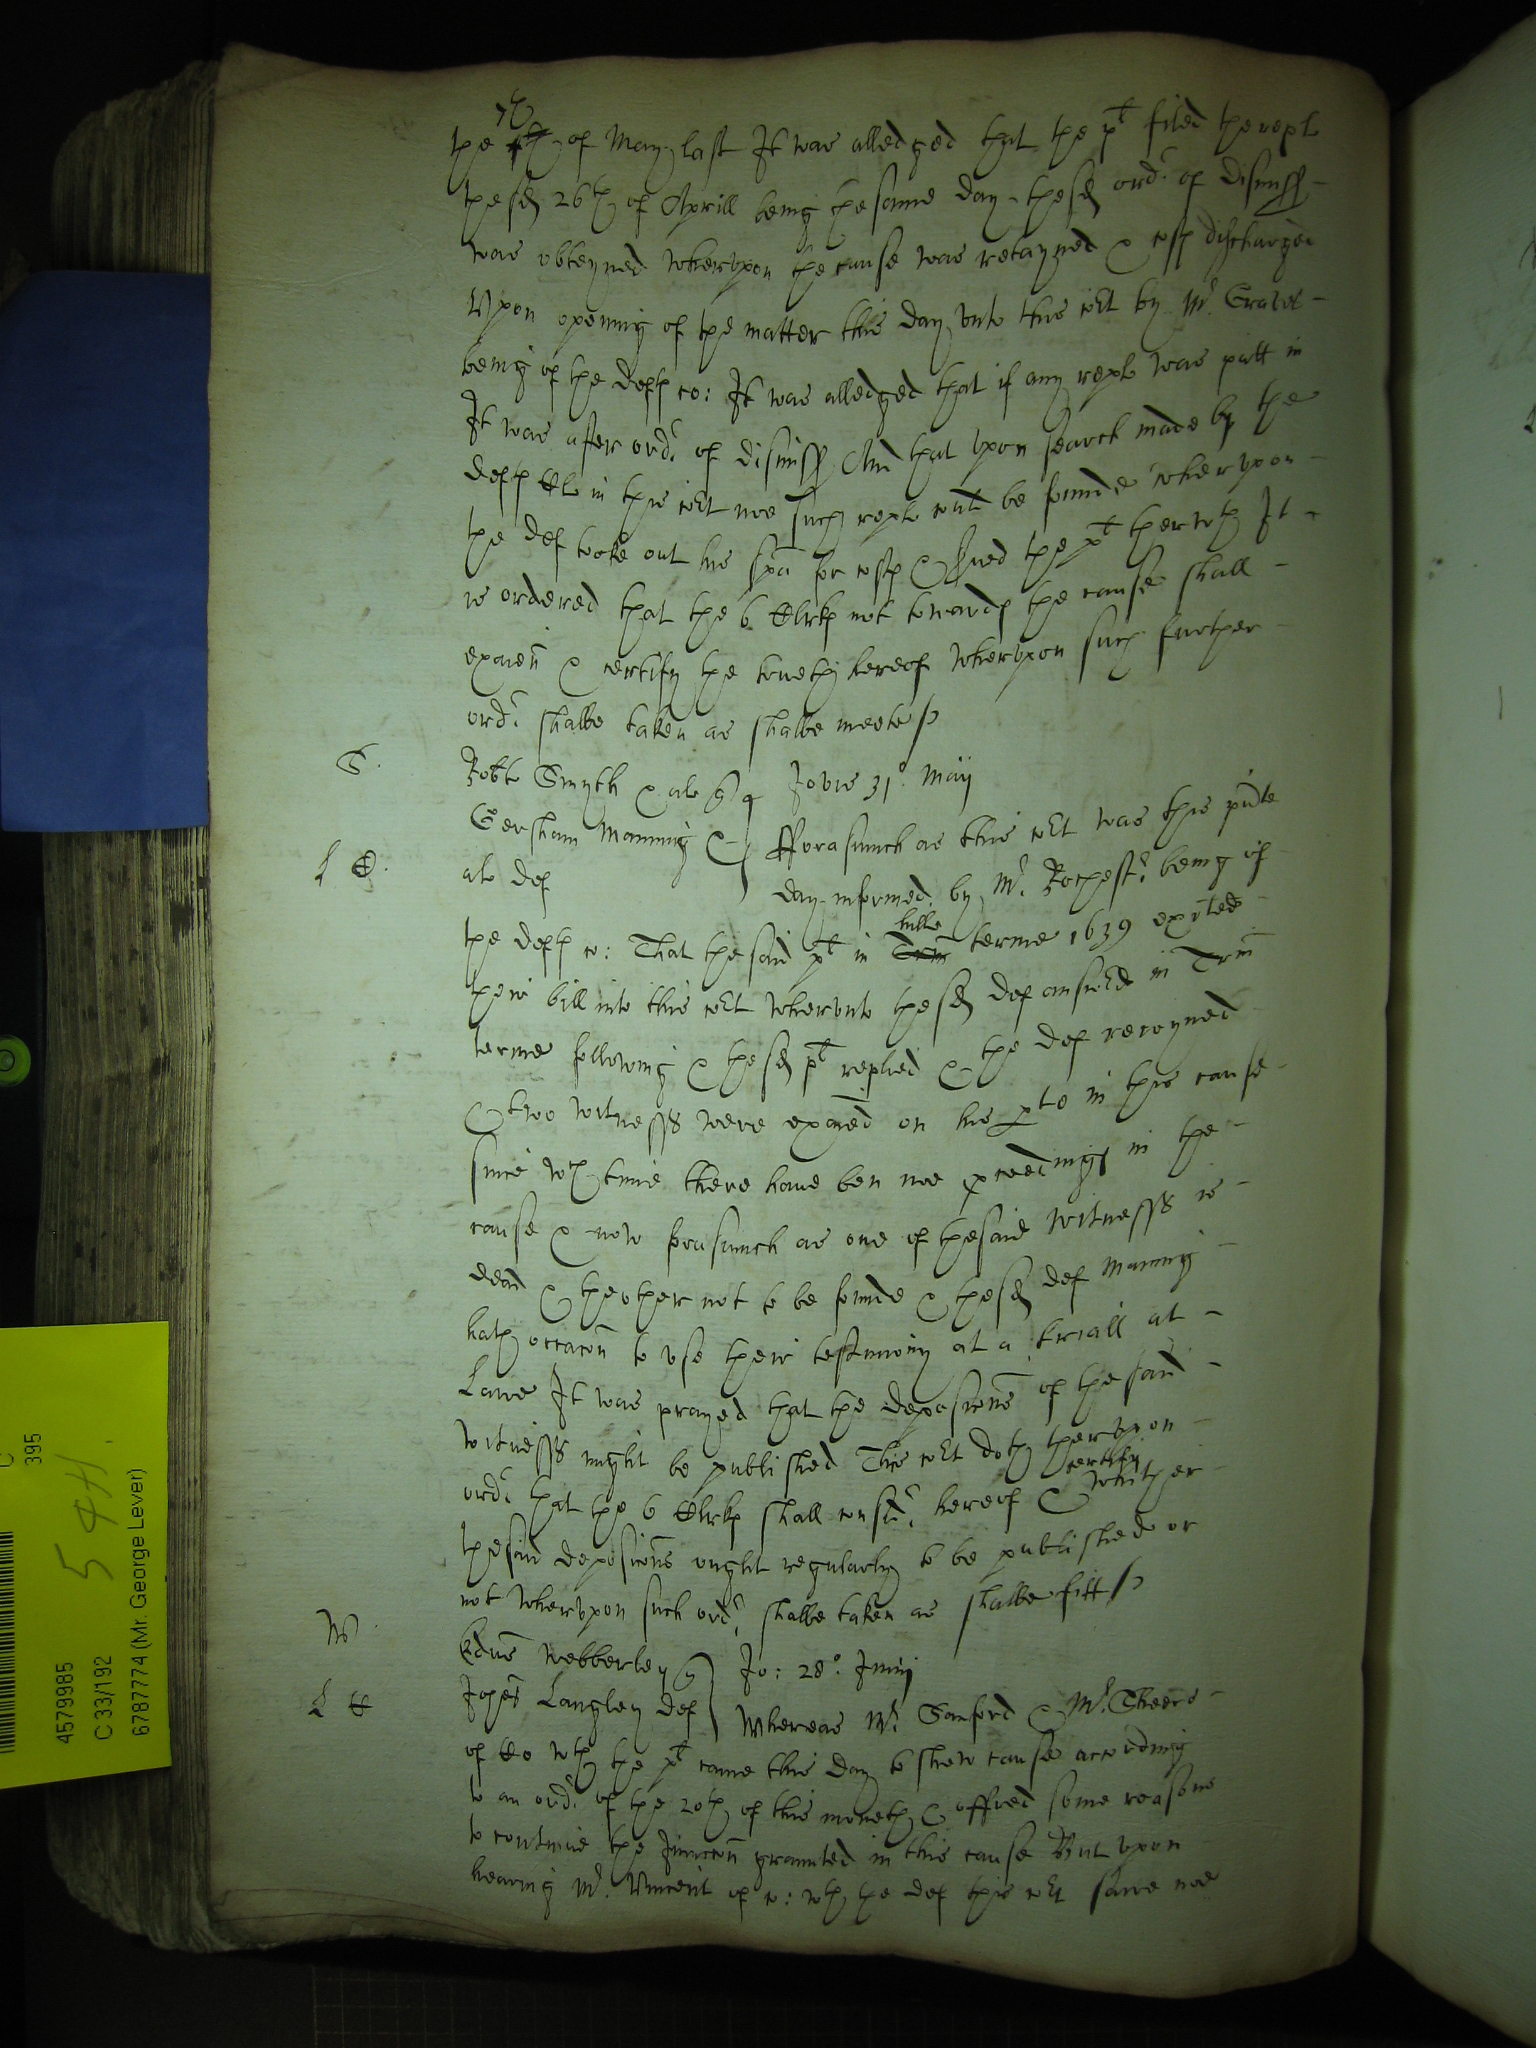 7th
the of May last It was alledged that the plt filed the repl
the sd 26th of Aprill being the same day the sd ordr of dismiss
was obteyned Whervpon the cause was retayned & costs discharged
Vpon opening of the matter this day vnto this cot by Mr
being of the defts co: It was alledged that if any repl was putt in
It was after ordr of dismiss And that vpon search made by the
defts Cl in this cot noe such repl could be founde whervpon
the def tooke out his spa for costs & srued the plt therwth It
is ordered that the 6 Clrks not towards the cause shall
examen & certify the trueth hereof Whervpon such further
ordr shalbe taken as shalbe meete
S.
Robt Smyth & al qr Jovis 31o Maij
Gersham Manning & fforasmuch as this cot was this pnte
L C.
als def day informed by Mr Rochestr being of
hill
the defts co: That the said plt in Trin terme 1639 exited
their bill into this cot Wherunto the sd def answed in Trin
terme following & the sd plt replied & the def reioyned
& two witnesss were exaied on his pte in this cause
since wch time there haue ben noe proceedings in the
cause & now forasmuch as one of the said witnesss is
dead & the other not to be founde & the sd def Manning
hath occacon to vse their testimony at a triall at
Lawe It was prayed that the deposicons of the said
witnesss might be published This cot doth thervpon
certify
ordr that the 6 Clrks shall consider hereof & whither
the said deposicons ought regularly to be published or
not Whervpon such ordr shalbe taken as shalbe fitt
W
Edrus Webberley qr Jo: 28o Junij
L C
Johes Langley def Whereas Mr Sanford & Mr
of Co wth the plt came this day to shew cause according
to an ordr of the 20th of this moneth & offred some reasons
to continue the Iniuncon graunted in this cause But vpon
hearing Mr Vincent of co: wth the def this cot sawe noe
C
395
5 4H.
4579985
C 33/192
6787774 (Mr. George Lever)